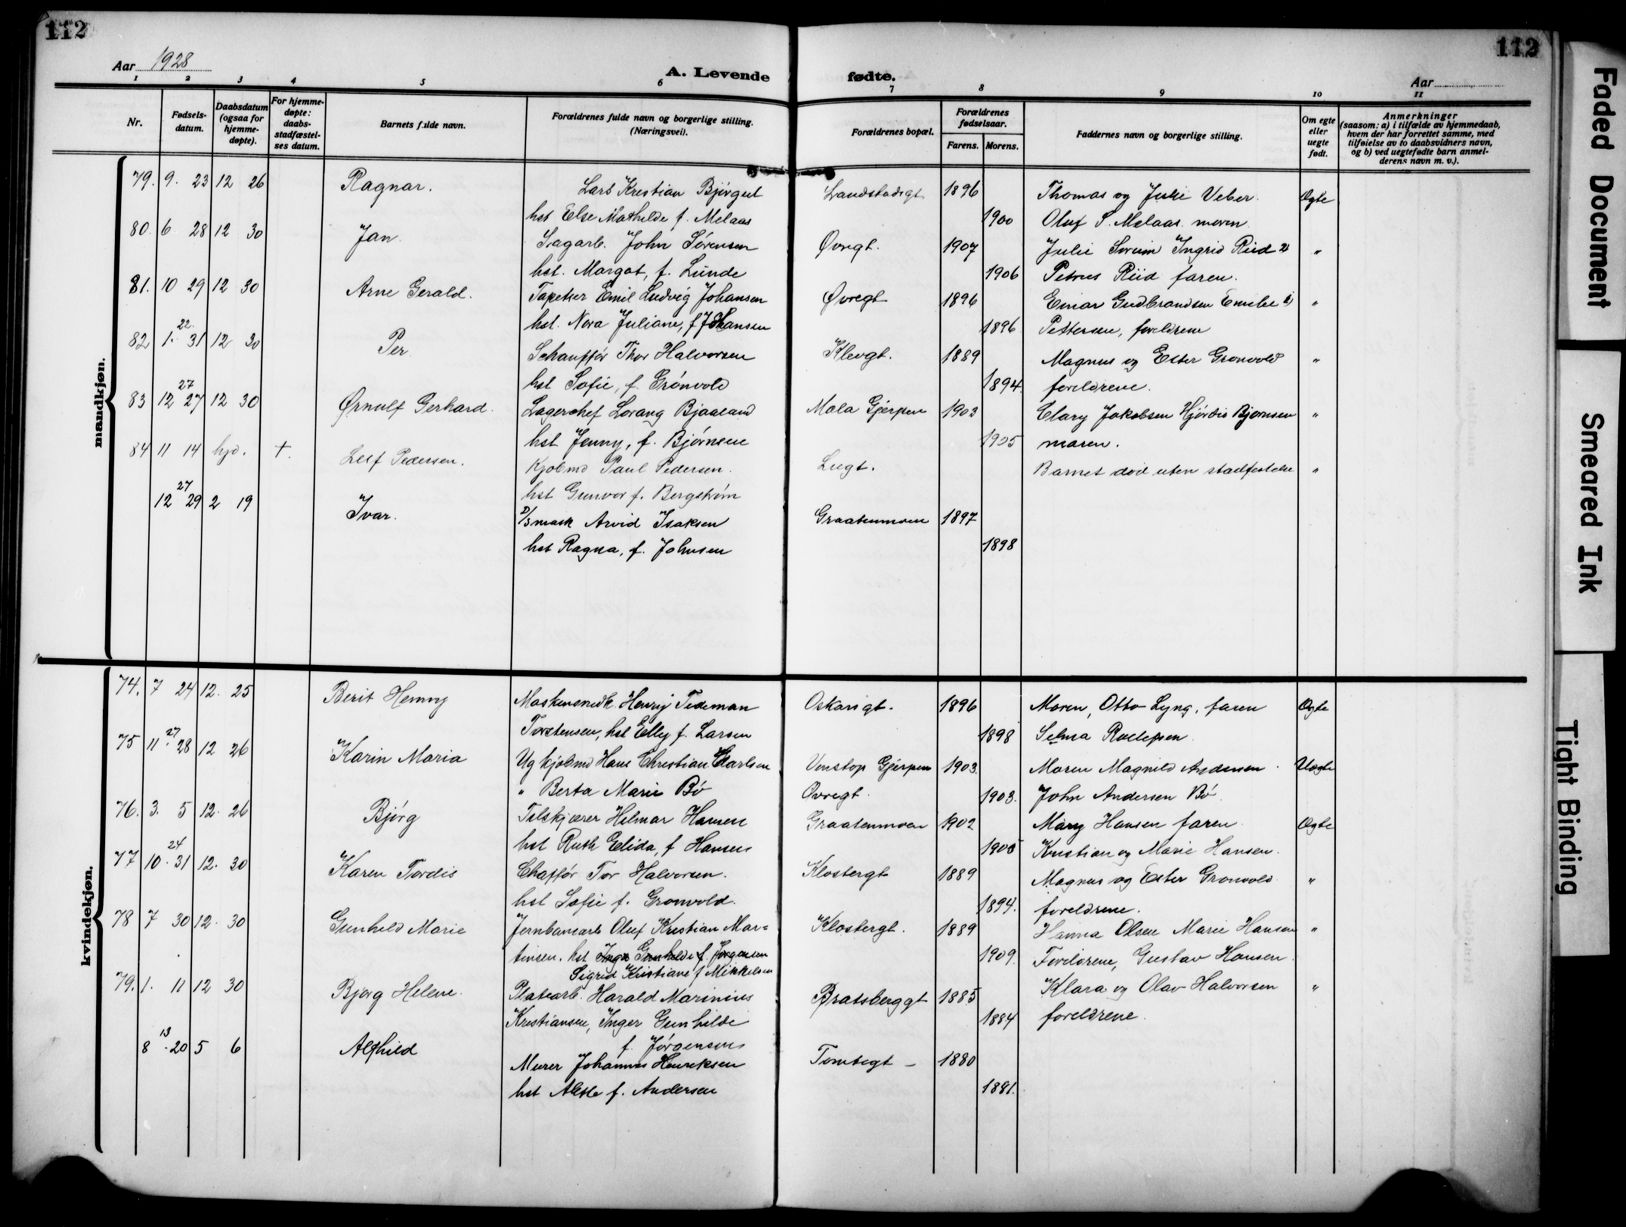 112
112
Aar 1928
A. Levende fødte.
Aar
1 2 3 4 5 6 7 8 9 10 11
Nr.
Fødsels-
datum.
Daabsdatum
(ogsaa for
hjemme-
døpte).
For hjemme-
døpte:
daabs-
stadfæstel-
ses datum.
Barnets fulde navn.
Forældrenes fulde navn og borgerlige stilling.
(Næringsvei).
Forældrenes bopæl.
Forældrenes
fødselsaar.
Farens. Morens.
Faddernes navn og borgerlige stilling.
Om egte
eller
uegte
født.
Anmerkninger
(saasom: a) i tilfælde av hjemmedaab,
hvem der har forrettet samme, med
tilføielse av to daabsvidners navn,
og b) ved uegtefødte barn anmel-
derens navn m. v.).
mandkjøn.
79. 9. 23 12 26 Ragnar. Lars Kristian Bjørgut Landstadsgt 1896 Thomas og Julie Veber Ægte
hst Else Mathilde f. Melaas 1900 Oluf S. Melaas moren
80. 6 28 12 30 Jan. Sagarb. John Sørensen Øvregt. 1907 Julie Ingrid Riid "
hst. Margot, f. Lunde 1906 Petrus Riid faren.
81. 10 29 12 30 Arne Gerald. Tapetser Emil Ludvig Johansen Øvregt 1896 Einar Gudbrandsen Emilie "
hst. Nora Juliane, f Johansen 1896 Pettersen, foreldrene
82 1. 22 31 12 30 Per Schauffør Thor Halvorsen Klevgt. 1889 Magnus og Ester Grønvold "
hst Sofie, f. Grønvold 1894 foreldrene.
83 12 27 27 12 30 Ørnulf Gerhard. Lagerchef Lorang Bjaaland Mæla Gjerpen 1903 Clary Jakobsen Hjørdis Bjørnsen "
hst Jenny, f. Bjørnsen 1905 moren.
84 11 14 hjd. +. Leif Pedersen. Kjøbmd Paul Pedersen. Liegt. Barnet død uten stadfestelse "
hst Gunvor f. Bergstrøm
12 27 29 2 19 Ivar. D/s mask Arvid Isaksen Graatenmoen 1897
hst Ragna, f. Johnsen 1898
kvindekjøn.
74. 7 24 12. 25 Berit Henny Maskinsmedk Henry Tideman Oskarsgt. 1896 Moren, Otto Lyng, faren Ægte
Torstensen, hst Elly f. Larsen 1898 Selma Rollefsen
75 11 27 28 12 26 Karin Maria Ug kjøbmd Hans Christian Carlsen Venstøp Gjerpen 1903. Moren Magnild Andersen Uægte
" Berta Marie Bø Øvregt. 1903. John Andersen Bø
76. 3. 5 12. 26 Bjørg Tilskjærer Hilmar Hansen Graatenmoen 1902 Mary Hansen faren. Ægte
hst Ruth Elida, f Hansen 1905 Kristian og Marie Hansen.
77 10. 24 31 12. 30 Karen Tordis Chaffør Tor Halvorsen. Klostergt 1889 Magnus og Ester Grønvold "
hst Sofie f. Grønvold. 1894. foreldrene.
78 7 30 12. 30 Gunhild Marie Jernbanearb Oluf Kristian Mar- Klostergt. 1889 Hanna Olsen Marie Hansen "
tinsen. hst Inger Gunhilde f. Jørgensen 1909. Foreldrene, Gustav Hansen.
Sigrid Kristiane f Mikkelsen
79. 1. 11 12 30 Bjørg Helene. Platearb. Harald Marinius Bratsberggt 1885 Klara og Olav Halvorsen "
Kristiansen, Inger Gunhilde 1884 foreldrene.
f. Jørgensen
8 13 20 5 6 Alfhild Murer Johannes Henriksen Tomtegt - 1880
hst Aleste f. Andersen 1881.
Faded Document
Smeared Ink
Tight Binding